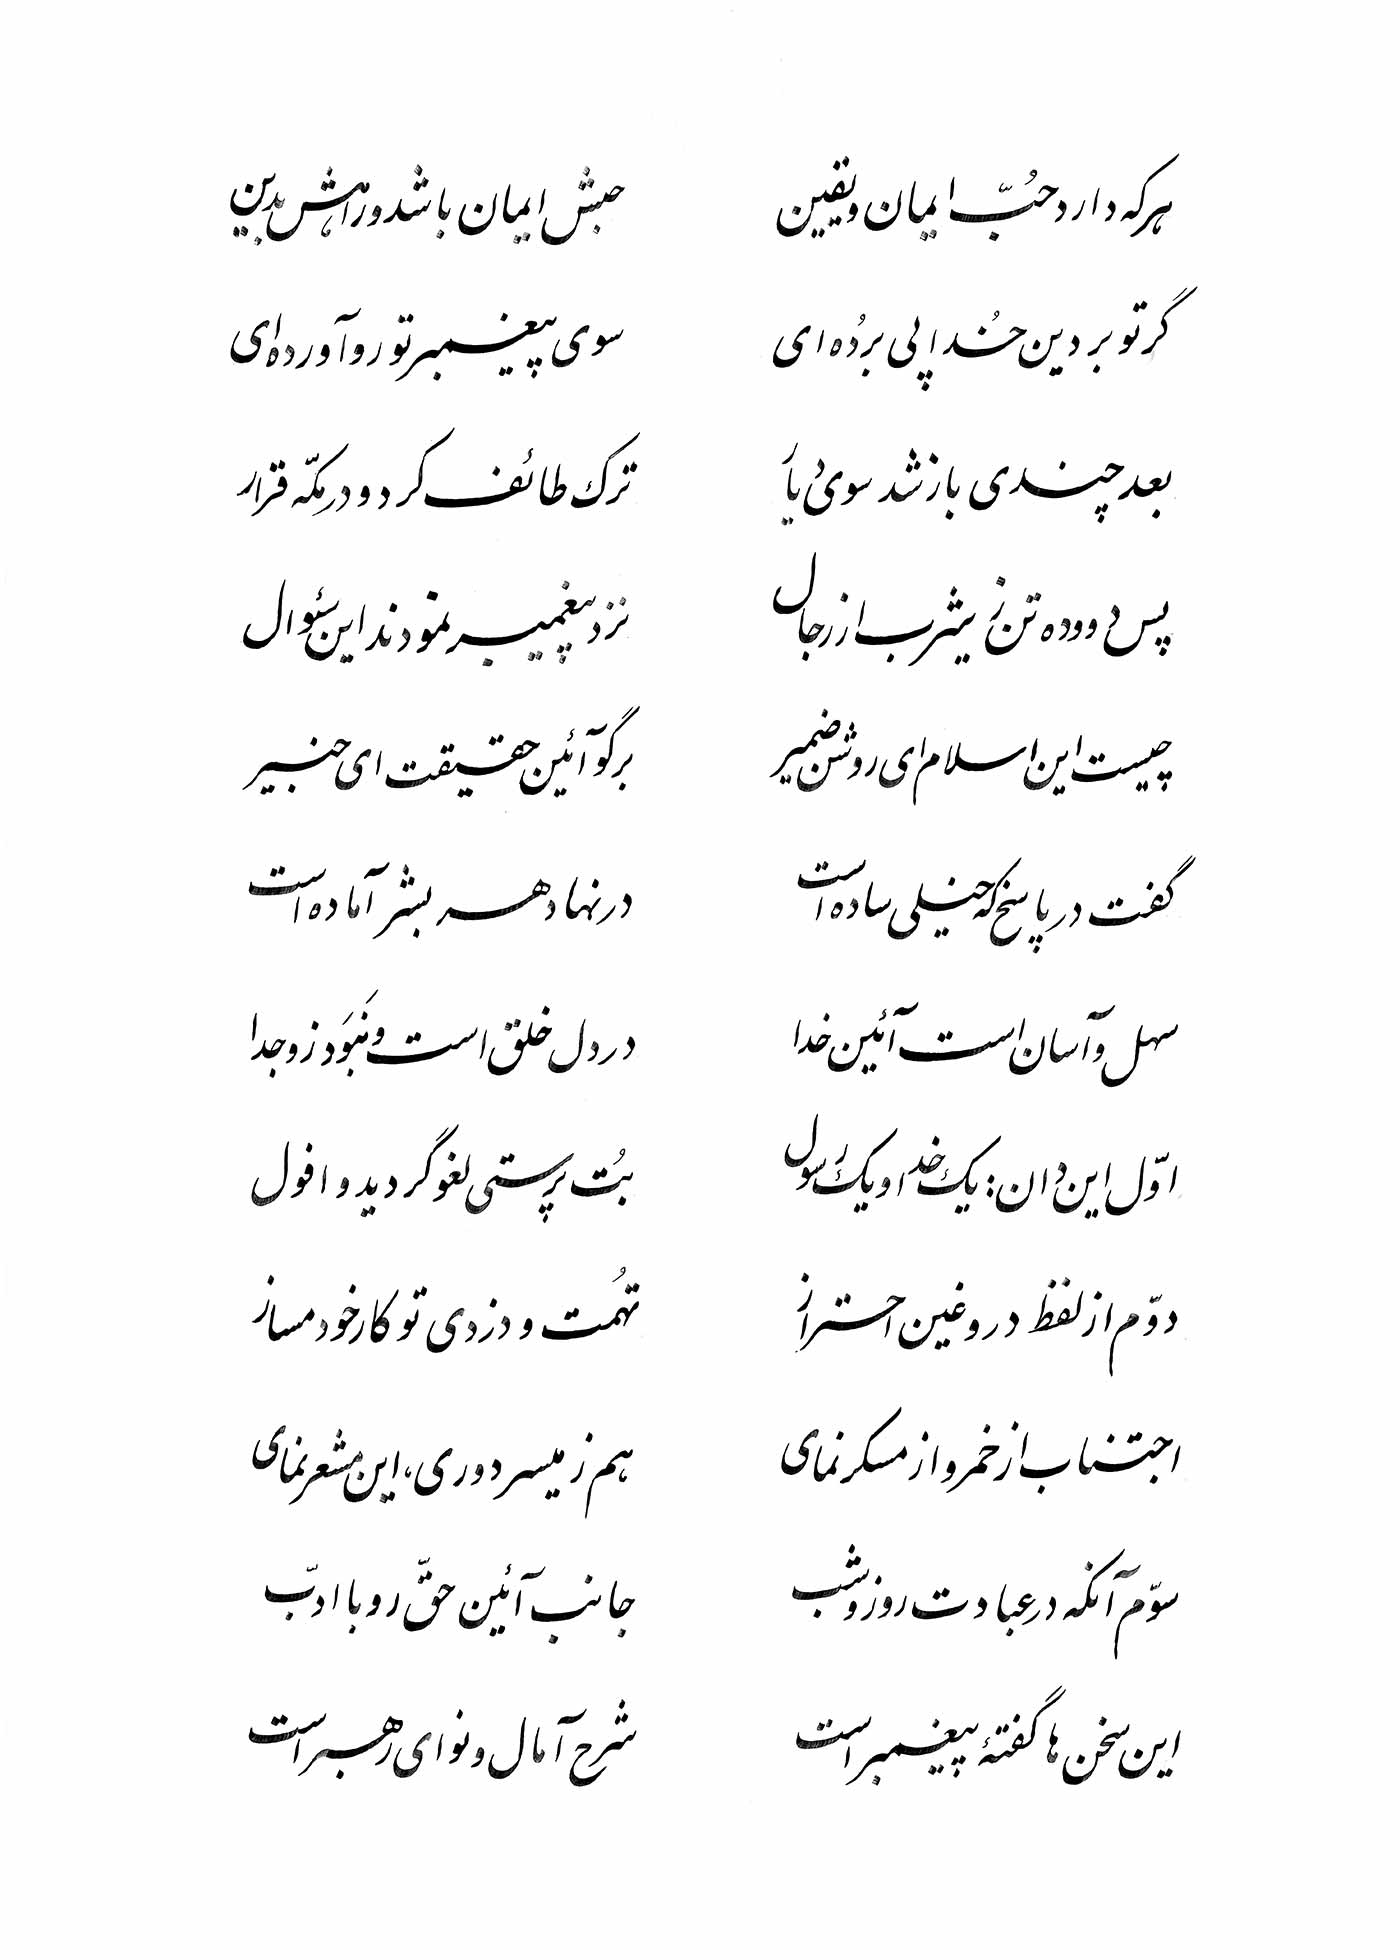 هرکه دارد حُبّ ایمان و یقین حبش ایمان باشد و راهش بدین
گر تو بر دین خُدا پی بردُه ای سوی پیغمبر تو رو آورده ای
بعد چندی باز شد سوی دیارَ ترک طائف کرد و در مکّه قرار
پس دو و ده تن ز یثرب از رجال نزد پیغمبر نمودند این سئوال
چیست این اسلام ای روشن ضمیر برگو آئین حقیقت ای خبیر
گفت در پاسخ که خیلی ساده است در نهاد هر بشر آماده است
سهل و آسان است آئین خدا در دل خلق است و نَبوَد زو جدا
اوّل این دان: یک خدا و یک رسول بُت پرستی لغو گردید و افول
دوّم از لفظ دروغین احتراز تهُمت و دزدی تو کار خود مساز
اجتناب از خمر و از مسکر نمای هم ز میسر دوری، این مشعر نمای
سوّم آنکه در عبادت روز و شب جانب آئین حقّ رو با ادبّ
این سخن ها گفتهٔ پیغمبر است شرح آمال و نوای رهبر است